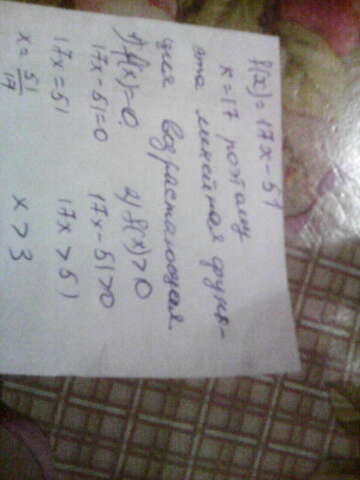 f(x) = 17x - 51
k = 17 поэтому
эта линейная функ-
ция возрастающая
1) f(x) = 0 2) f(x) > 0
17x - 51 = 0 17x - 51 > 0
17x = 51 17x > 51
x = 51/17 x > 3